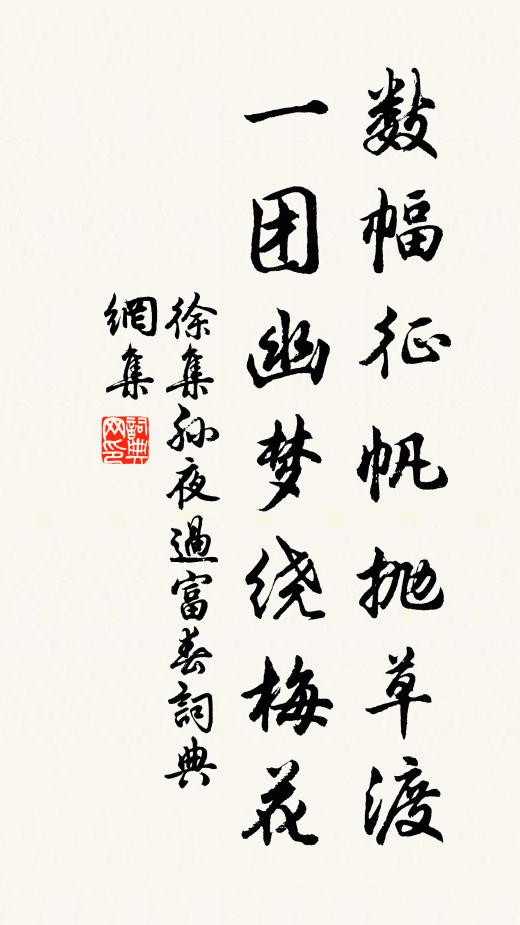 数幅征帆抛草渡
一团幽梦绕梅花
徐集孙夜過富春詞典
網集
詞典
网印